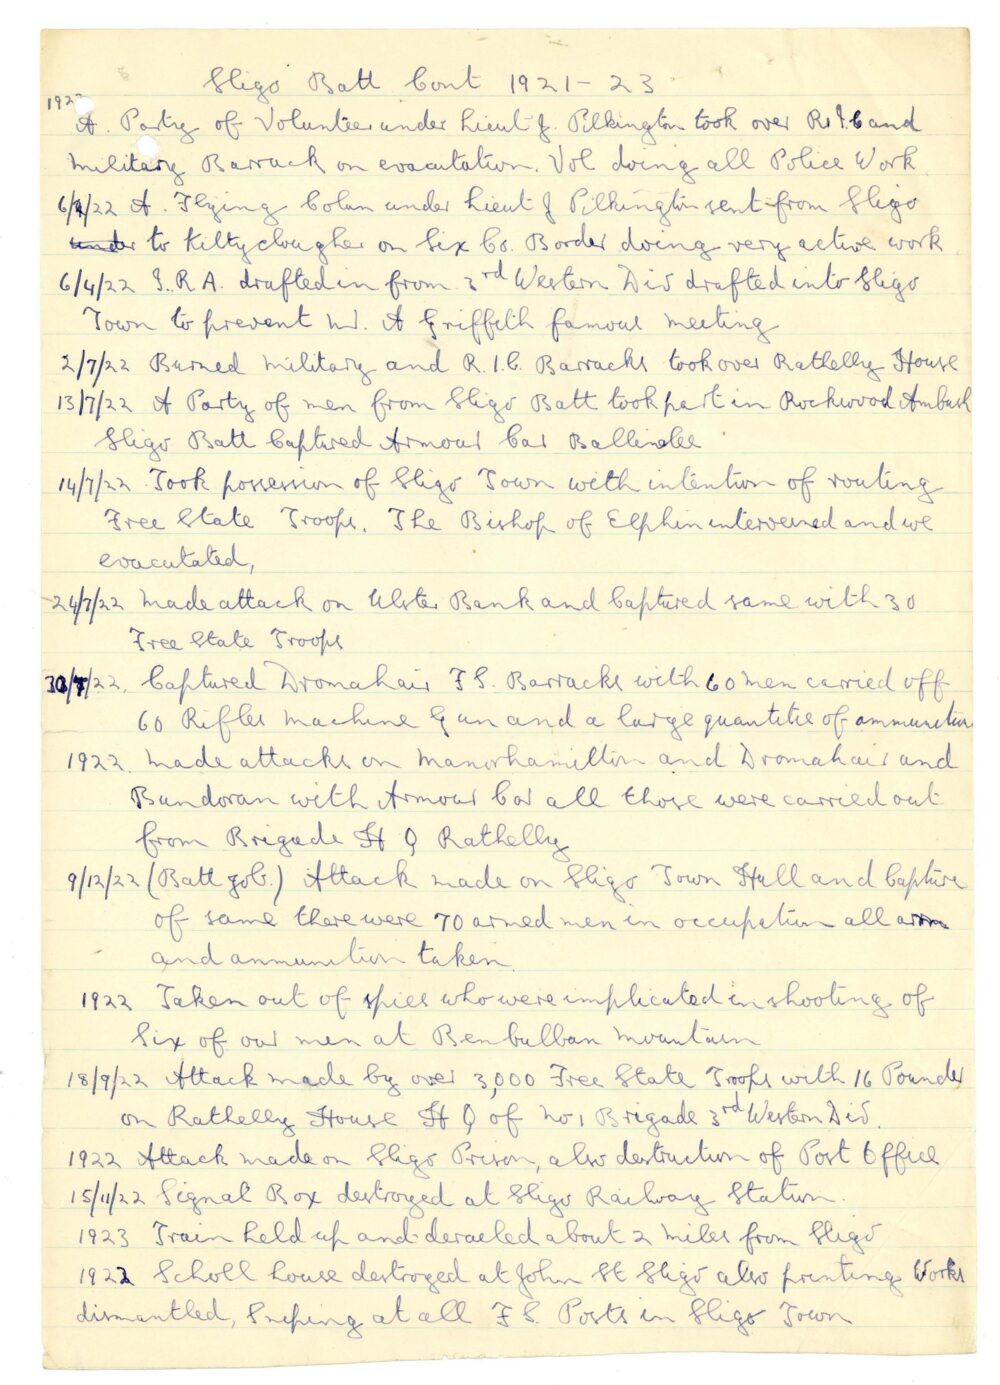 Sligo Batt Cont 1921-23
1922
A. Party of Volunteer under Lieut J. Pilkington took over R.I.C and
military Barrack on evacutation. Vol doing all Police Work
6/4/22 A. Flying Colum under Lieut J Pilkington sent from Sligo
under to Kiltyclougher on Six Co. Border doing very active work
6/4/22 I.R.A. drafted in from 3rd Western Div drafted into Sligo
Town to prevent Mr. A Griffith famous meeting
2/7/22 Burned military and R.I.C. Barracks took over Rathelly House
13/7/22 A Party of men from Sligo Batt took part in Rockwood Ambush
Sligo Batt Captured Armour Car Ballinalee
14/7/22 Took possession of Sligo Town with intention of routing
Free State Troops. The Bishop of Elphin interveined and we
evacutated,
24/7/22 made attack on Ulster Bank and Captured same with 30
Free State Troops
30/7/22. Captured Dromahair F S. Barracks with 60 men carried off
60 Rifles machine Gun and a large quantitie of ammunition
1922. made attacks on Manorhamilton and Dromahair and
Bundoran with Armour Car all those were carried out
from Brigade H Q Rathelly
9/12/22 (Batt job.) Attack made on Sligo Town Hall and Capture
of same there were 70 armed men in occupation all arm
and ammunition taken.
1922 Taken out of spies who were implicated in shooting of
Six of our men at Benbulban mountain
18/9/22 Attack made by over 3,000 Free State Troops with 16 Pounder
on Rathelly House H Q of No 1 Brigade 3rd Western Div.
1922 Attack made on Sligo Prison, also destruction of Post Office
15/11/22 Signal Box destroyed at Sligo Railway Station.
1923 Train held up and deraeled about 2 miles from Sligo
1922 Scholl house destroyed at John St Sligo also printing Works
dismantled, Sniping at all F S. Posts in Sligo Town